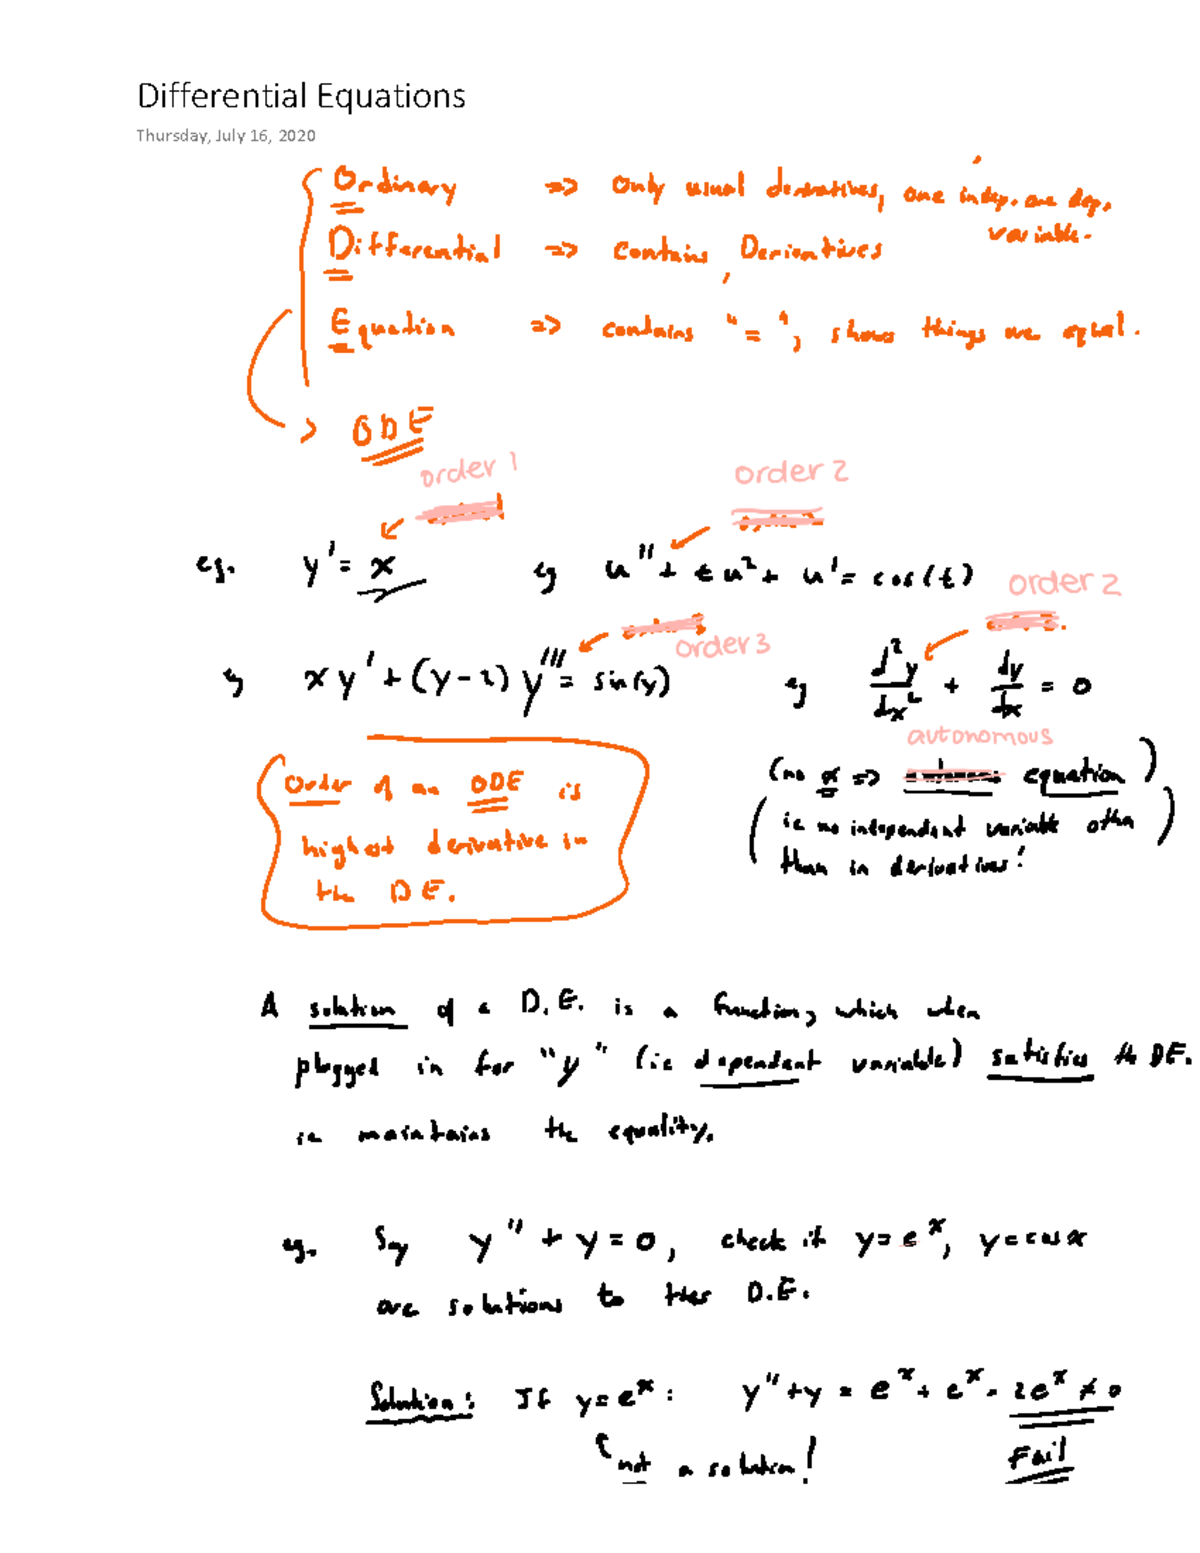 Differential Equations
Thursday, July 16, 2020
Ordinary => Only usual derivatives, one indep. one dep. variable.
Differential => contains, Derivatives
Equation => contains "=", shows things are equal.
ODE
order 1 order 2
eg. y' = x eg u'' + t u² + u' = cos(t)
order 3 order 2
eg x y' + (y-2) y''' = sin(y) eg d²y/dx² + dy/dx = 0
autonomous
(no x => equation)
Order of an ODE is
highest derivative in
the DE.
(ie no independent variable other
than in derivatives!)
A solution of a D.E. is a function, which when
plugged in for "y" (ie dependent variable) satisfies the DE.
ie maintains the equality.
eg. Say y'' + y = 0, check if y = e^x, y = cos x
are solutions to the D.E.
Solution: If y = e^x : y'' + y = e^x + e^x = 2e^x ≠ 0
not a solution! Fail